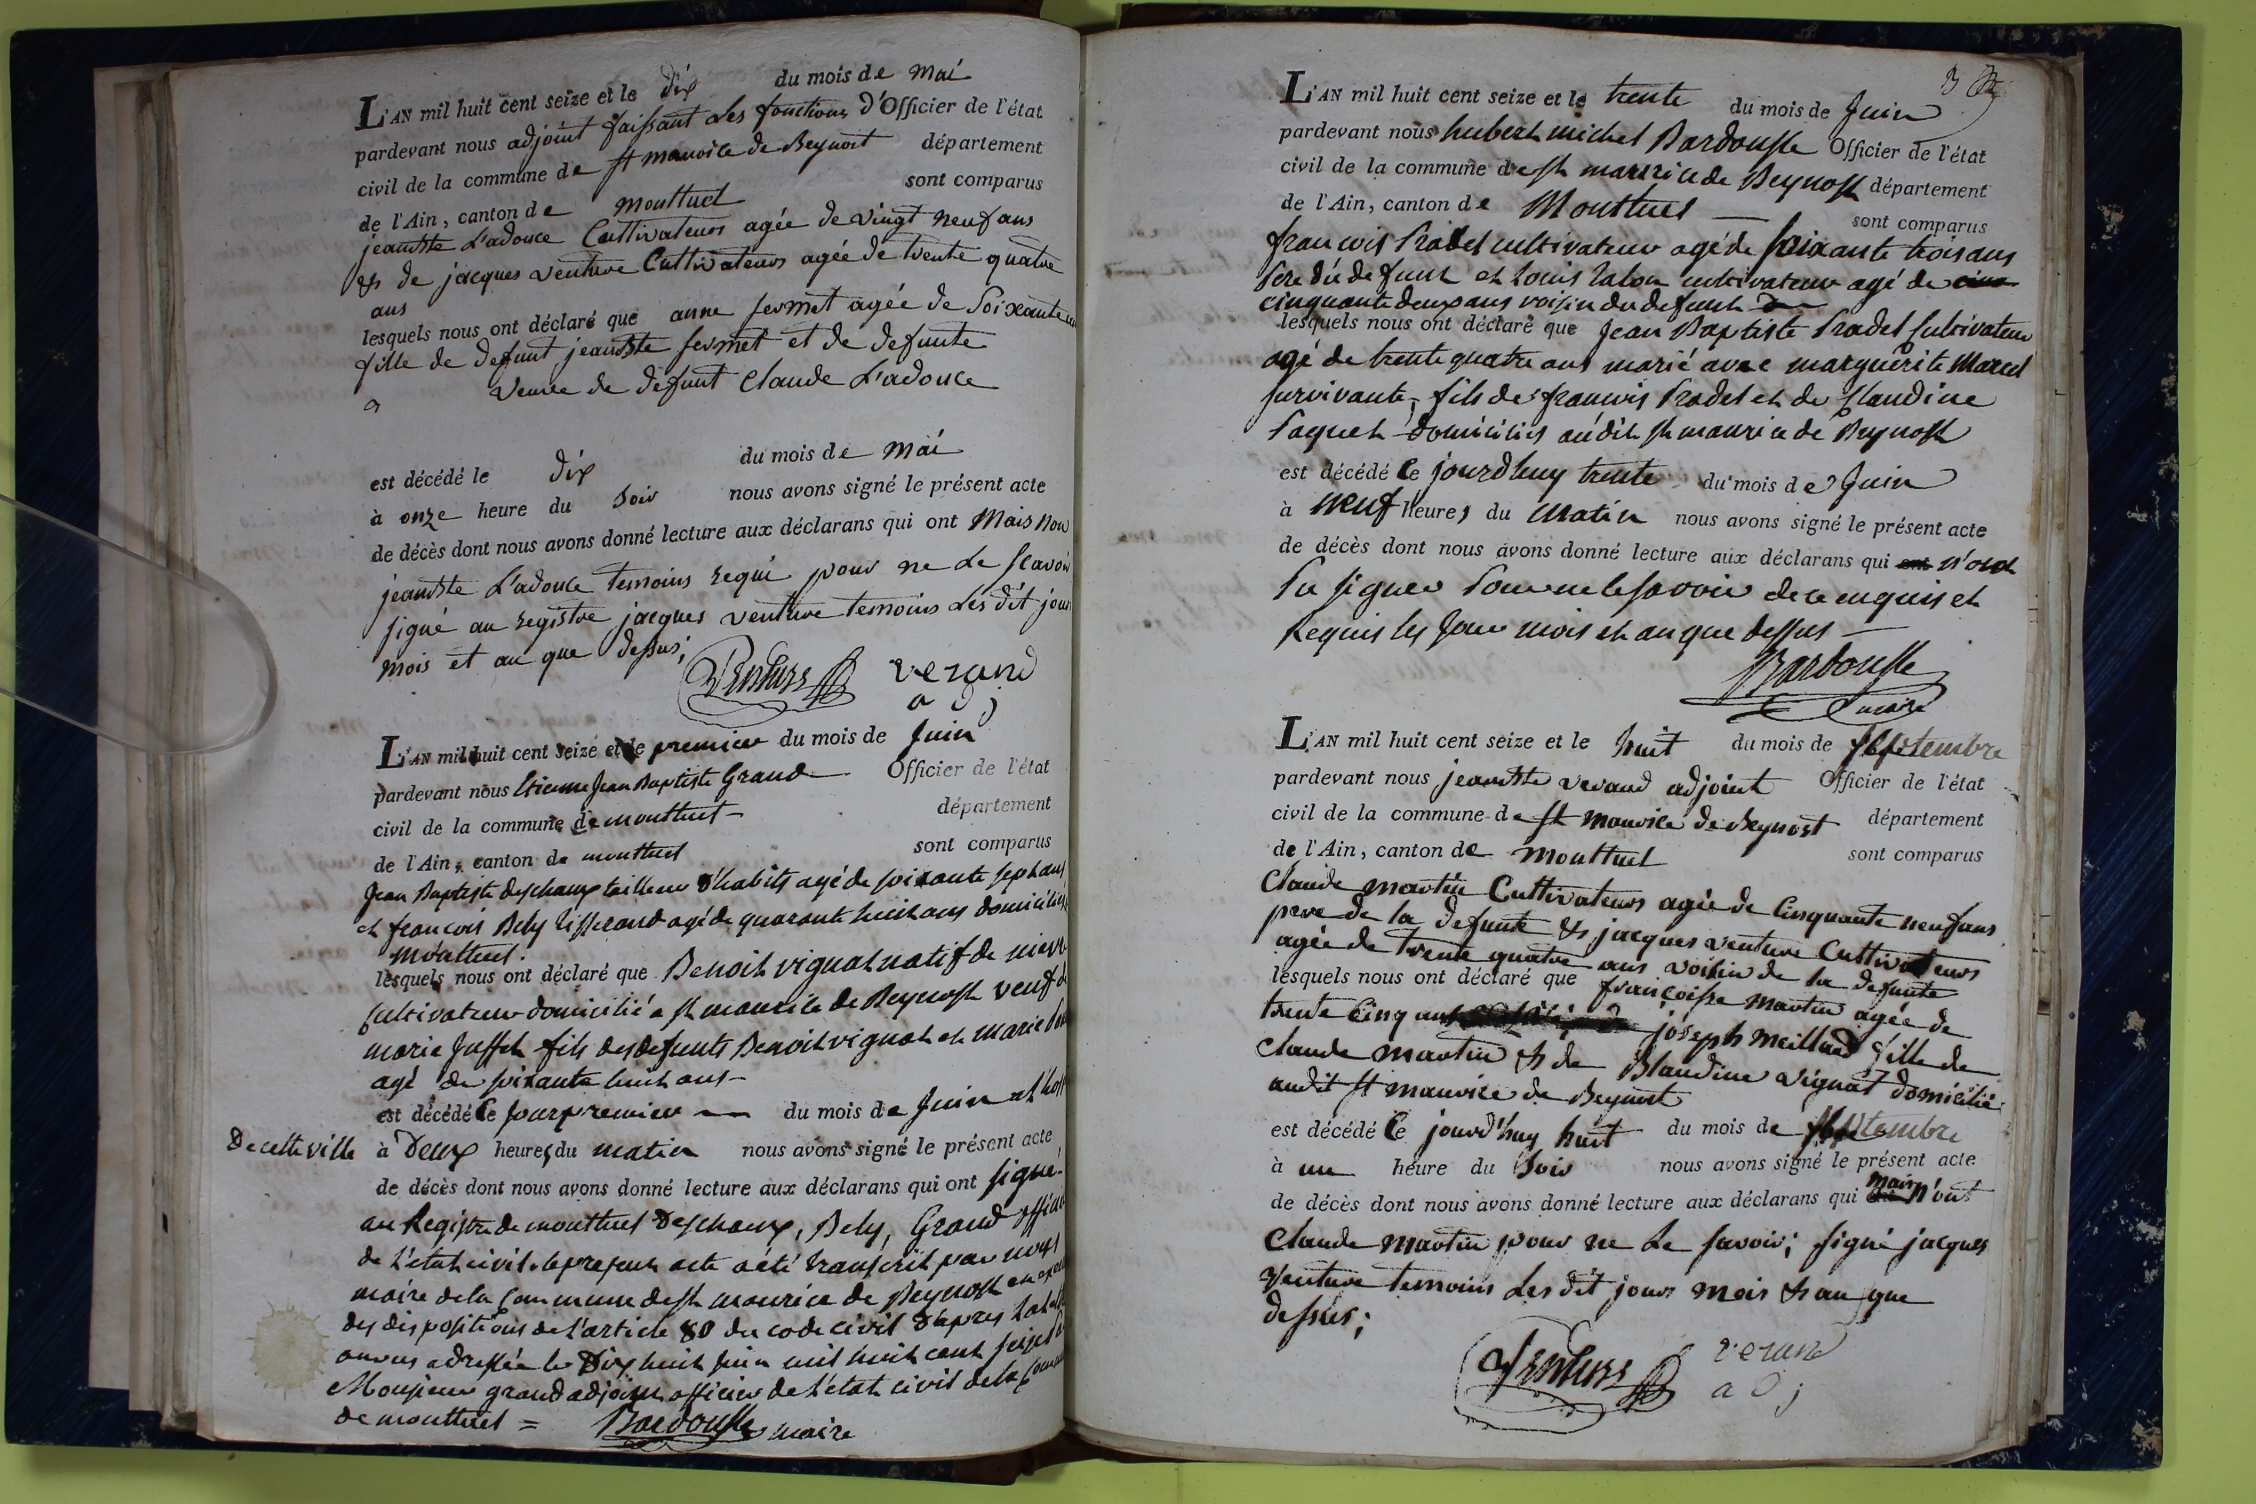 L'AN mil huit cent seize et le dix du mois de mai
pardevant nous adjoint faissant les fonctions d'Officier de l'état
civil de la commune de st mauvice de Beynost département
de l'Ain, canton de montluel sont comparus
jeanbte L'adouce Cultivateurs agée de vingt neuf ans
& de jacques venture Cultivateurs agée de trente quatre
ans
lesquels nous ont déclaré que anne fermet agée de soixante
fille de defunt jeanbte fermet et de defunte
a veuve de defunt claude L'adouce
est décédé le dix du mois de mai
à onze heure du soir nous avons signé le présent acte
de décès dont nous avons donné lecture aux déclarans qui ont Mais non
jeanbte L'adouce temoins requi pour ne le scavoir
signé au registre jacques venture temoins les dit jour
mois et an que dessus;
Venture verand
adj
L'AN mil huit cent seize et le premier du mois de Juin
pardevant nous Etienne Jean Baptiste Grand Officier de l'état
civil de la commune de montluel département
de l'Ain, canton de montluel sont comparus
Jean Baptiste deschamp tailleur d'habits agé de soixante sept ans
et françois Bely tisserand agé de quarante huit ans domiciliés
montluel.
lesquels nous ont déclaré que Benoit vignat natif de
Cultivateur domicilié a st maurice de Beynost veuf de
marie Juffet fils des defunts Benoit vignat et marie
agé de soixante huit ans
est décédé ce jour premier du mois de Juin
De cette ville à Deux heures du matin nous avons signé le présent acte
de décès dont nous avons donné lecture aux déclarans qui ont signé
au Registre de montluel Deschamp, Bely, Grand officier
de l'état civil. le present acte a été transcrit par nous
maire de la Commune de st maurice de Beynost en
des dispositions de l'article 80 du code civil d'apres
a nous adressée le Dix huit juin mil huit cent seize
Monsieur grand adjoint officier de l'etat civil de la
de montluel = Bardousse maire
L'AN mil huit cent seize et le trente du mois de Juin
pardevant nous hubert michel Bardousse Officier de l'état
civil de la commune de st maurice de Beynost département
de l'Ain, canton de Montluel sont comparus
françois Pradel cultivateur agé de soixante trois ans
Pere du defunt et Louis Laton cultivateur agé de cinq
cinquante deux ans voisin du defunt
lesquels nous ont déclaré que Jean Baptiste Pradel Cultivateur
agé de trente quatre ans marié avec marguerite Marcel
survivante, fils de françois Pradel et de Claudine
Paquet domiciliés audit st maurice de Beynost
est décédé ce jourd'huy trente du mois de Juin
à neuf heures du matin nous avons signé le présent acte
de décès dont nous avons donné lecture aux déclarans qui ont n'ont
Pu signer Pour ne le savoir de ce enquis et
Requis les jour mois et an que dessus
Bardousse
maire
L'AN mil huit cent seize et le huit du mois de septembre
pardevant nous jeanbte verand adjoint Officier de l'état
civil de la commune de st mauvice de Beynost département
de l'Ain, canton de montluel sont comparus
Claude martin Cultivateurs agée de Cinquante neuf ans
pere de la defunte & jacques venture Cultivateurs
agée de trente quatre ans voisin de la defunte
lesquels nous ont déclaré que françoisse martin agée de
trente cinq ans joseph meilland fille de
claude martin & de Blandine vignat domicilié
audit st mauvice de Beynost
est décédé ce jourd'huy huit du mois de septembre
à un heure du soir nous avons signé le présent acte
de décès dont nous avons donné lecture aux déclarans qui mais n'ont
Claude martin pour ne le savoir; signé jacques
venture temoins les dit jours mois & an que
dessus;
Venture verand
adj